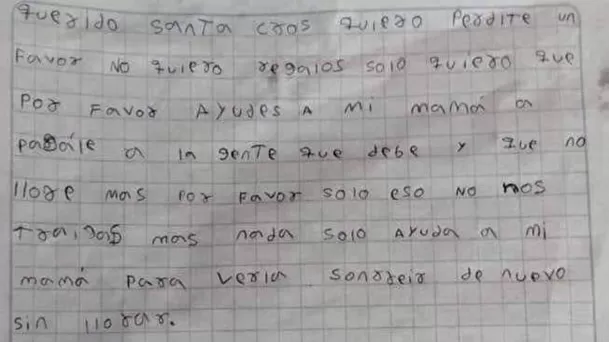 querido santa clos quiero Perdite un
Favor NO quiero regalos solo quiero que
Por Favor AYUdes A mi mamá a
pagále a la gente que debe y que no
llore mas por Favor solo eso NO nos
traigas mas nada solo AYUda a mi
mamá para verla sonrreir de nuevo
sin llorar.